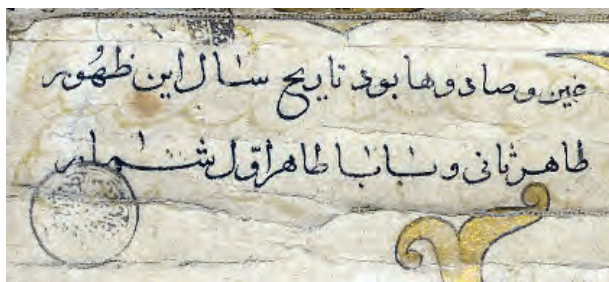 غین و صاد و ها بود تاریخ سال این ظهور
طاهر ثانی و بابا طاهر اول شمار